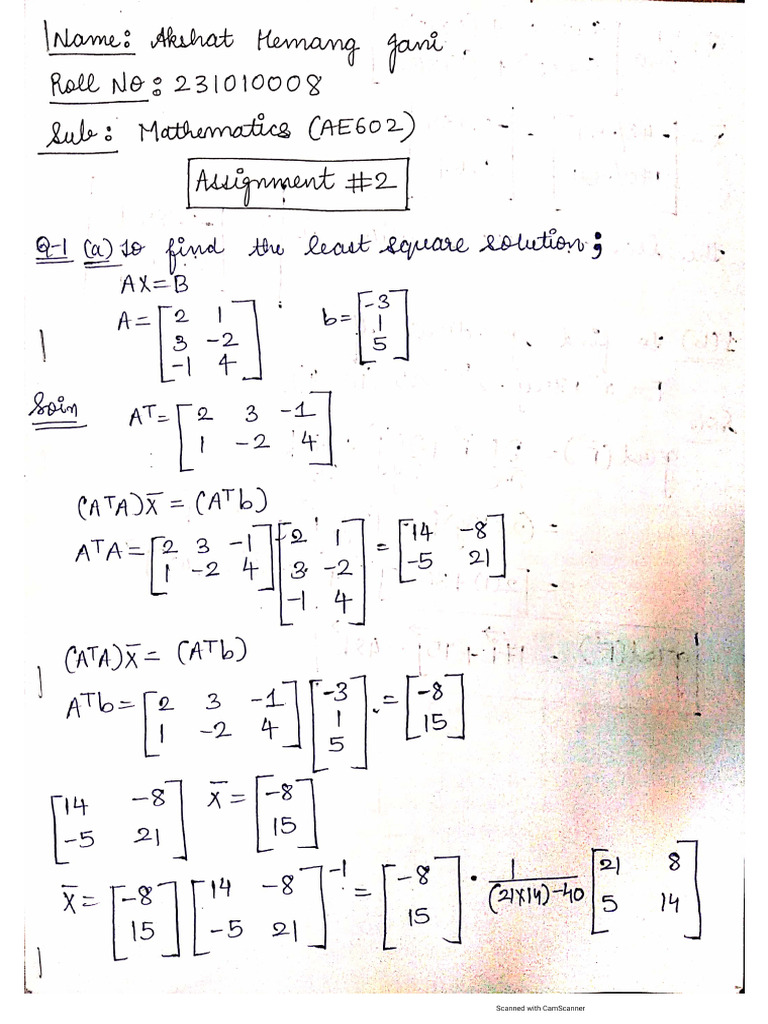 Name: Akshat Hemang Jani .
Roll No: 231010008
Sub: Mathematics (AE602)
Assignment #2
Q-1 (a) To find the least square solution;
AX=B
A= [2 1
3 -2
-1 4]
b= [-3
1
5]
Soln
AT= [2 3 -1
1 -2 4]
(ATA)x̄ = (ATb)
ATA= [2 3 -1
1 -2 4] [2 1
3 -2
-1 4] = [14 -8
-5 21]
(ATA)x̄ = (ATb)
ATb= [2 3 -1
1 -2 4] [-3
1
5] = [-8
15]
[14 -8
-5 21] x̄ = [-8
15]
x̄ = [-8
15] [14 -8
-5 21]-1 = [-8
15] . 1/(21X14)-40 [21 8
5 14]
Scanned with CamScanner